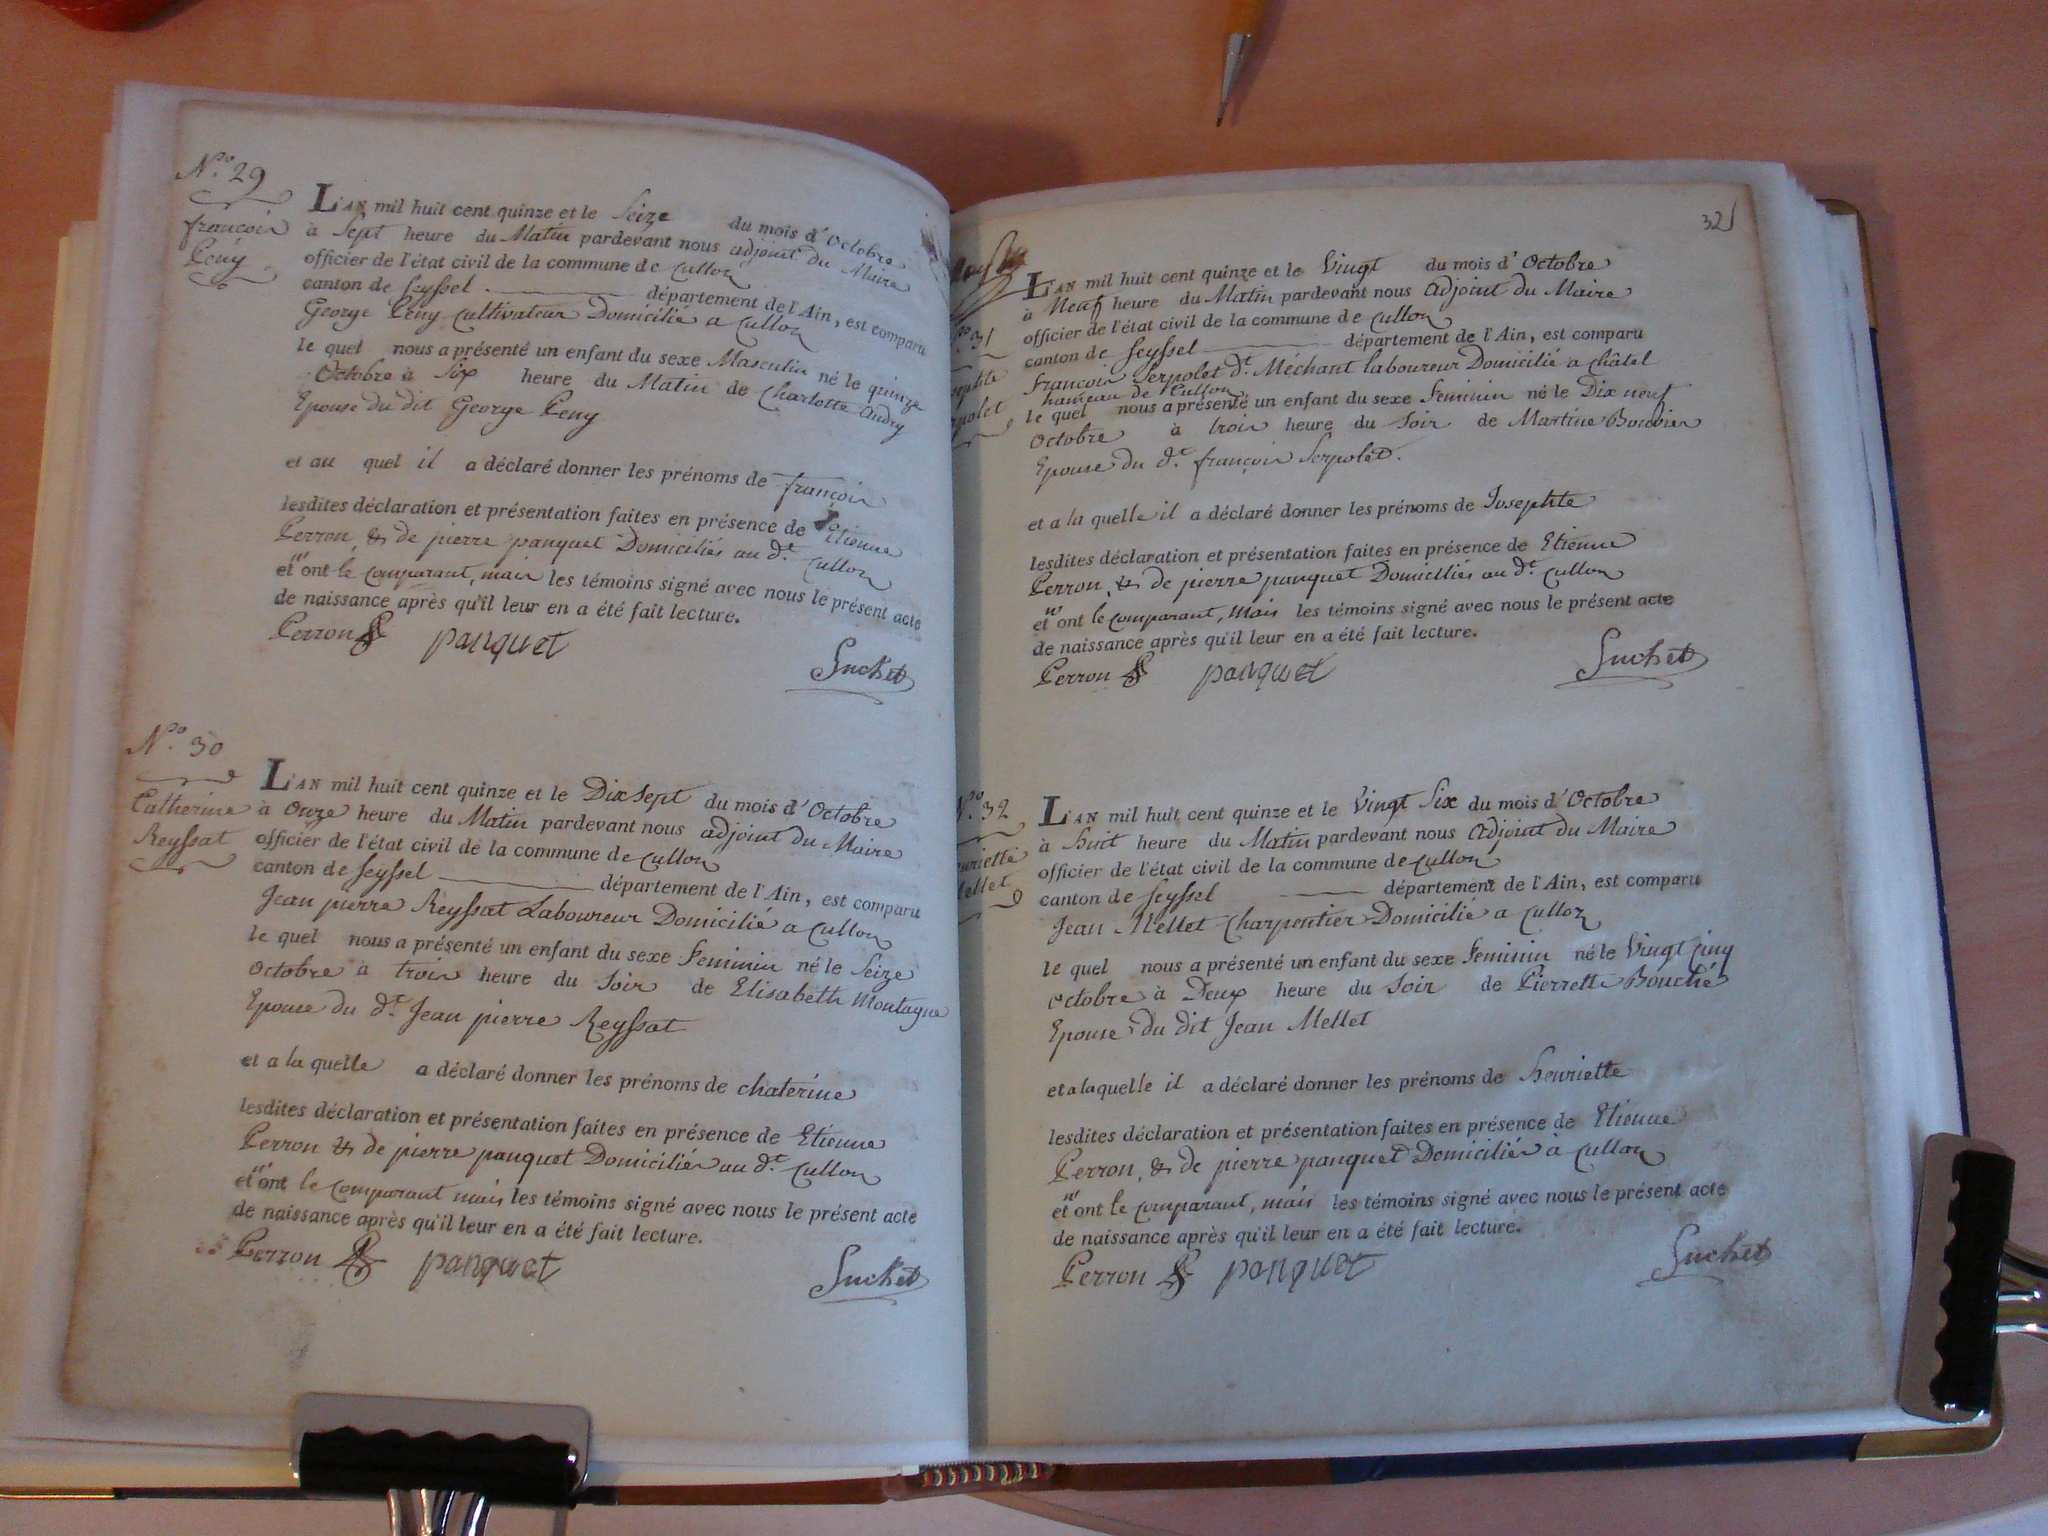 N.o 29
françois
Peny
L'AN mil huit cent quinze et le Seize du mois d'Octobre
à Sept heure du Matin pardevant nous adjoint du Maire
officier de l'état civil de la commune de Culloz
canton de Seyssel département de l'Ain, est comparu
George Peny Cultivateur Domicilié a Culloz
le quel nous a présenté un enfant du sexe Masculin né le quinze
Octobre à Six heure du Matin de Charlotte Audry
Epouse du dit George Peny
et au quel il a déclaré donner les prénoms de françois
lesdites déclaration et présentation faites en présence de Etienne
Perron, & de pierre panquet Domiciliés au d.t Culloz
et n'ont le comparant, mais les témoins signé avec nous le présent acte
de naissance après qu'il leur en a été fait lecture.
Perron panquet
Suchet
N.o 30
Catherine
Reyssat
L'AN mil huit cent quinze et le Dix Sept du mois d'Octobre
à Onze heure du Matin pardevant nous adjoint du Maire
officier de l'état civil de la commune de Culloz
canton de Seyssel département de l'Ain, est comparu
Jean pierre Reyssat Laboureur Domicilié a Culloz
le quel nous a présenté un enfant du sexe Feminin né le Seize
Octobre à trois heure du Soir de Elisabeth Montagne
Epouse du d.t Jean pierre Reyssat
et a la quelle a déclaré donner les prénoms de chaterine
lesdites déclaration et présentation faites en présence de Etienne
Perron & de pierre panquet Domiciliés au d.t Culloz
et n'ont le comparant mais les témoins signé avec nous le présent acte
de naissance après qu'il leur en a été fait lecture.
Perron panquet
Suchet
32
31
L'AN mil huit cent quinze et le Vingt du mois d'Octobre
à Neuf heure du Matin pardevant nous Adjoint du Maire
officier de l'état civil de la commune de Culloz
canton de Seyssel département de l'Ain, est comparu
Francois Serpolet d.t Méchant laboureur Domicilié a Châtel
hameau de Culloz
le quel nous a présenté un enfant du sexe Feminin né le Dix neuf
Octobre à trois heure du Soir de Martine Bouvier
Epouse du d.t françois Serpolet.
et a la quelle il a déclaré donner les prénoms de Josephte
lesdites déclaration et présentation faites en présence de Etienne
Perron, & de pierre panquet Domiciliés au d.t Culloz
et n'ont le comparant, mais les témoins signé avec nous le présent acte
de naissance après qu'il leur en a été fait lecture.
Perron panquet
Suchet
N.o 32
uriette
Mellet
L'AN mil huit cent quinze et le Vingt Six du mois d'Octobre
à Huit heure du Matin pardevant nous Adjoint du Maire
officier de l'état civil de la commune de Culloz
canton de Seyssel département de l'Ain, est comparu
Jean Mellet Charpentier Domicilié a Culloz
le quel nous a présenté un enfant du sexe Feminin né le Vingt cinq
Octobre à Deux heure du Soir de Pierrette Bouché
Epouse du dit Jean Mellet
et a laquelle il a déclaré donner les prénoms de Henriette
lesdites déclaration et présentation faites en présence de Etienne
Perron, & de pierre panquet Domiciliés à Culloz
et n'ont le comparant, mais les témoins signé avec nous le présent acte
de naissance après qu'il leur en a été fait lecture.
Perron panquet
Suchet